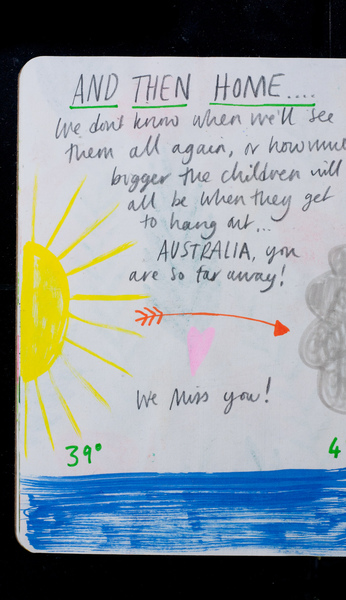 AND THEN HOME....
We don't know when we'll see
them all again, or how mu
bigger the children will
all be when they get
to hang out...
AUSTRALIA, you
are so far away!
We Miss you!
39° 4